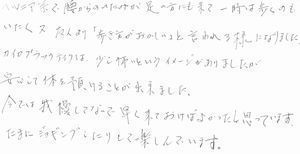 ヘルニア京で、腰からのいたみが足の方にも来て一時は歩くのも
いたく、又、友人より「歩き方がおかしい」と言われる様になりました。
カイロプラクティクは、少し怖いというイメージがありましたが
安心して体を預けることが出来ました。
今では我慢してないで早く来ておけばよかったと思っています。
たまにジョギングしたりして楽しんでいます。